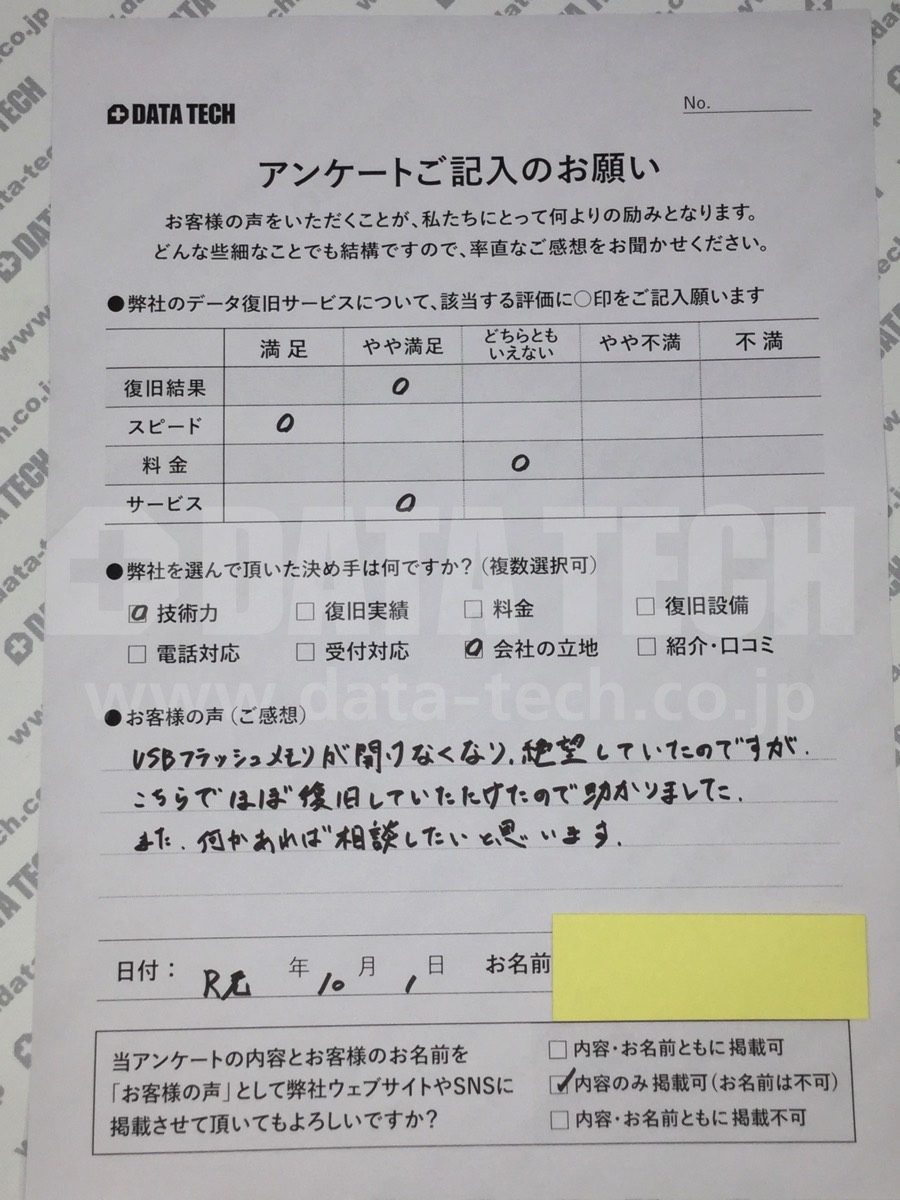 DATA TECH
No.
アンケートご記入のお願い
お客様の声をいただくことが、私たちにとって何よりの励みとなります。
どんな些細なことでも結構ですので、率直なご感想をお聞かせください。
●弊社のデータ復旧サービスについて、該当する評価に○印をご記入願います
満足 やや満足 どちらともいえない やや不満 不満
復旧結果 O
スピード O
料金 O
サービス O
DATA TECH
●弊社を選んで頂いた決め手は何ですか?(複数選択可)
技術力 □復旧実績 □料金 □復旧設備
□電話対応 □受付対応 会社の立地 □紹介・口コミ
www.data-tech.co.jp
●お客様の声(ご感想)
USBフラッシュメモリが開けなくなり、絶望していたのですが、
こちらでほぼ復旧していただけたので助かりました。
また、何かあれば相談したいと思います。
日付: R元 年 10 月 1 日 お名前
当アンケートの内容とお客様のお名前を
「お客様の声」として弊社ウェブサイトやSNSに
掲載させて頂いてもよろしいですか?
□内容・お名前ともに掲載可
☑内容のみ掲載可(お名前は不可)
□内容・お名前ともに掲載不可